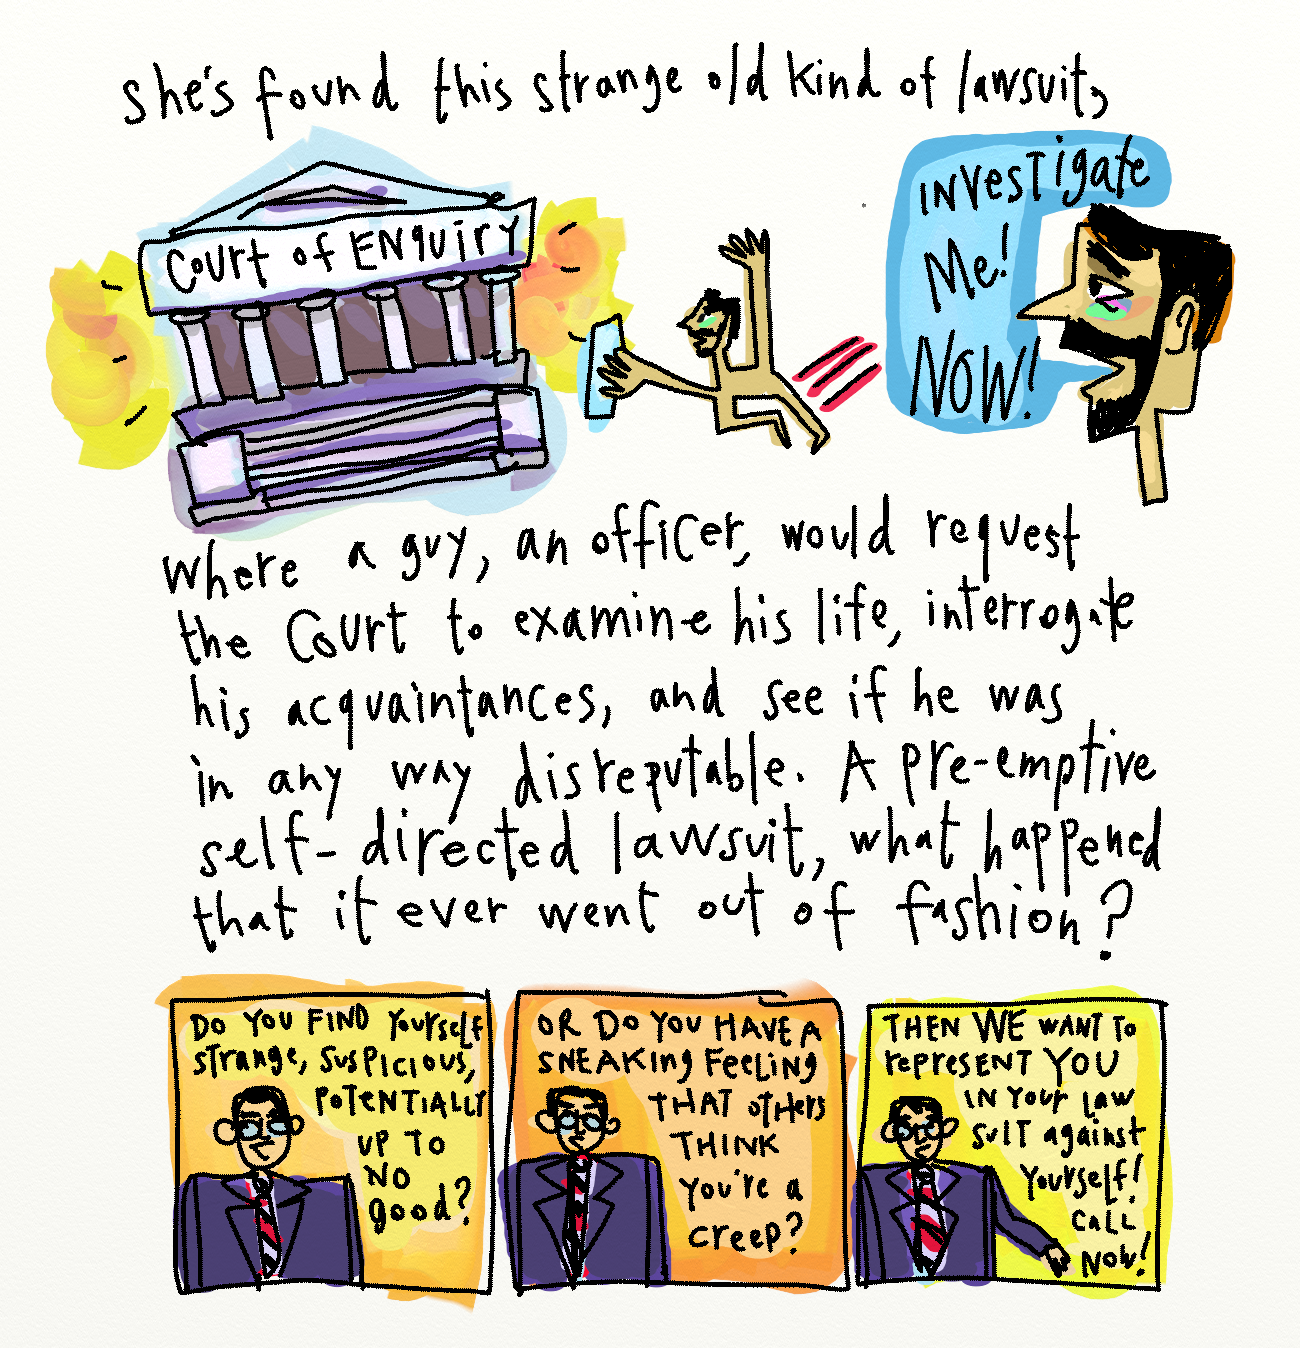 She's found this strange old kind of lawsuit,
COURT OF ENQUIRY
INVESTIGATE
ME!
NOW!
where a guy, an officer, would request
the Court to examine his life, interrogate
his acquaintances, and see if he was
in any way disreputable. A pre-emptive
self-directed lawsuit, what happened
that it ever went out of fashion?
DO YOU FIND YOURSELF
STRANGE, SUSPICIOUS,
POTENTIALLY
UP TO
NO
good?
OR DO YOU HAVE A
SNEAKING FEELING
THAT OTHERS
THINK
YOU'RE A
CREEP?
THEN WE WANT TO
REPRESENT YOU
IN YOUR LAW
SUIT AGAINST
YOURSELF!
CALL
NOW!